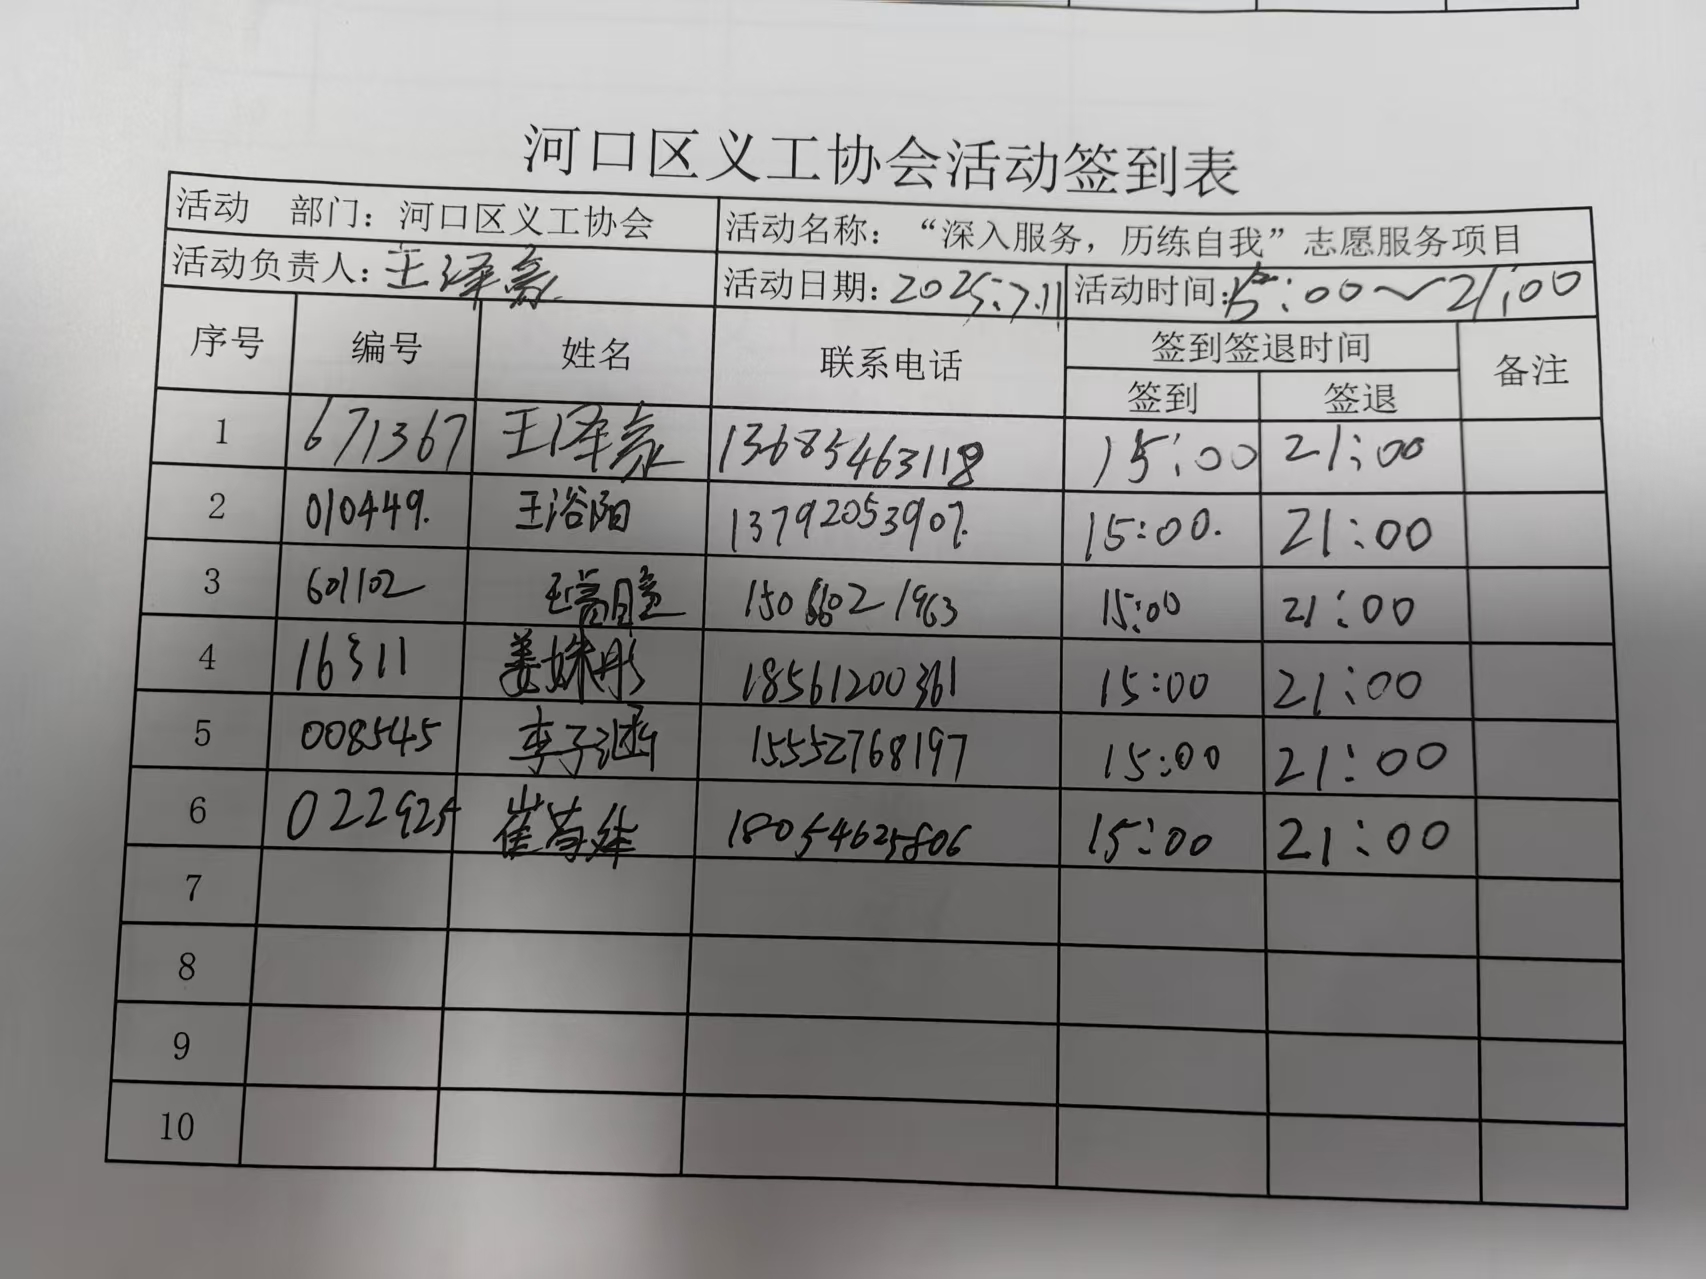 河口区义工协会活动签到表
活动 部门：河口区义工协会 活动名称：“深入服务，历练自我”志愿服务项目
活动负责人：王泽豪 活动日期：2025.7.11 活动时间：15：00～21：00
序号 编号 姓名 联系电话 签到签退时间 备注
签到 签退
1 671367 王泽豪 13685463118 15：00 21：00
2 010449. 王浴阳 13792053907. 15：00. 21：00
3 601102 15066021963 15：00 21：00
4 16311 姜姝彤 18561200361 15：00 21：00
5 008545 李子涵 15552768197 15：00 21：00
6 022925 崔 18054625806 15：00 21：00
7
8
9
10